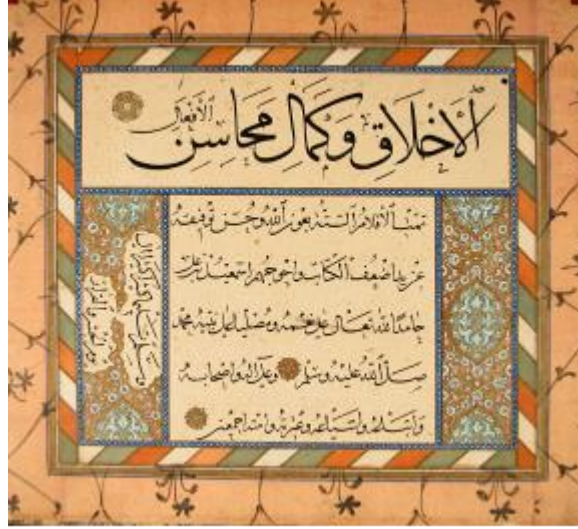 الأخلاق وكمال محاسن الأفعال
تمت الأقلام الستة بعون الله وحسن توفيقه
عن يد أضعف الكتاب وأحوجهم إسمعيل بن علي
حامدا لله تعالى على نعمه ومصليا على نبيه محمد
صلى الله عليه وسلم وعلى آله وأصحابه
وأتباعه وأشياعه وعترته وأمته أجمعين